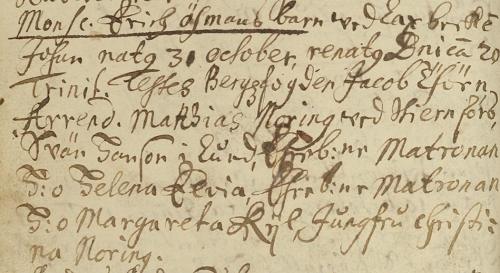 Mons. Erich Ösmans barn ved Laxbrecke
Johan nat9 31 october, renat9 Dnicâ 20
Trinit. Testes Bergzfogden Jacob Esörn,
Arrend. Matthias Noring ved Stiernfors,
Svän Janson i Lund, Ehreb:ne Matronan
H:o Helena Elvia, Ehreb:ne Matronan
H:o Margareta Kÿl, Jungfru Christi=
na Noring.